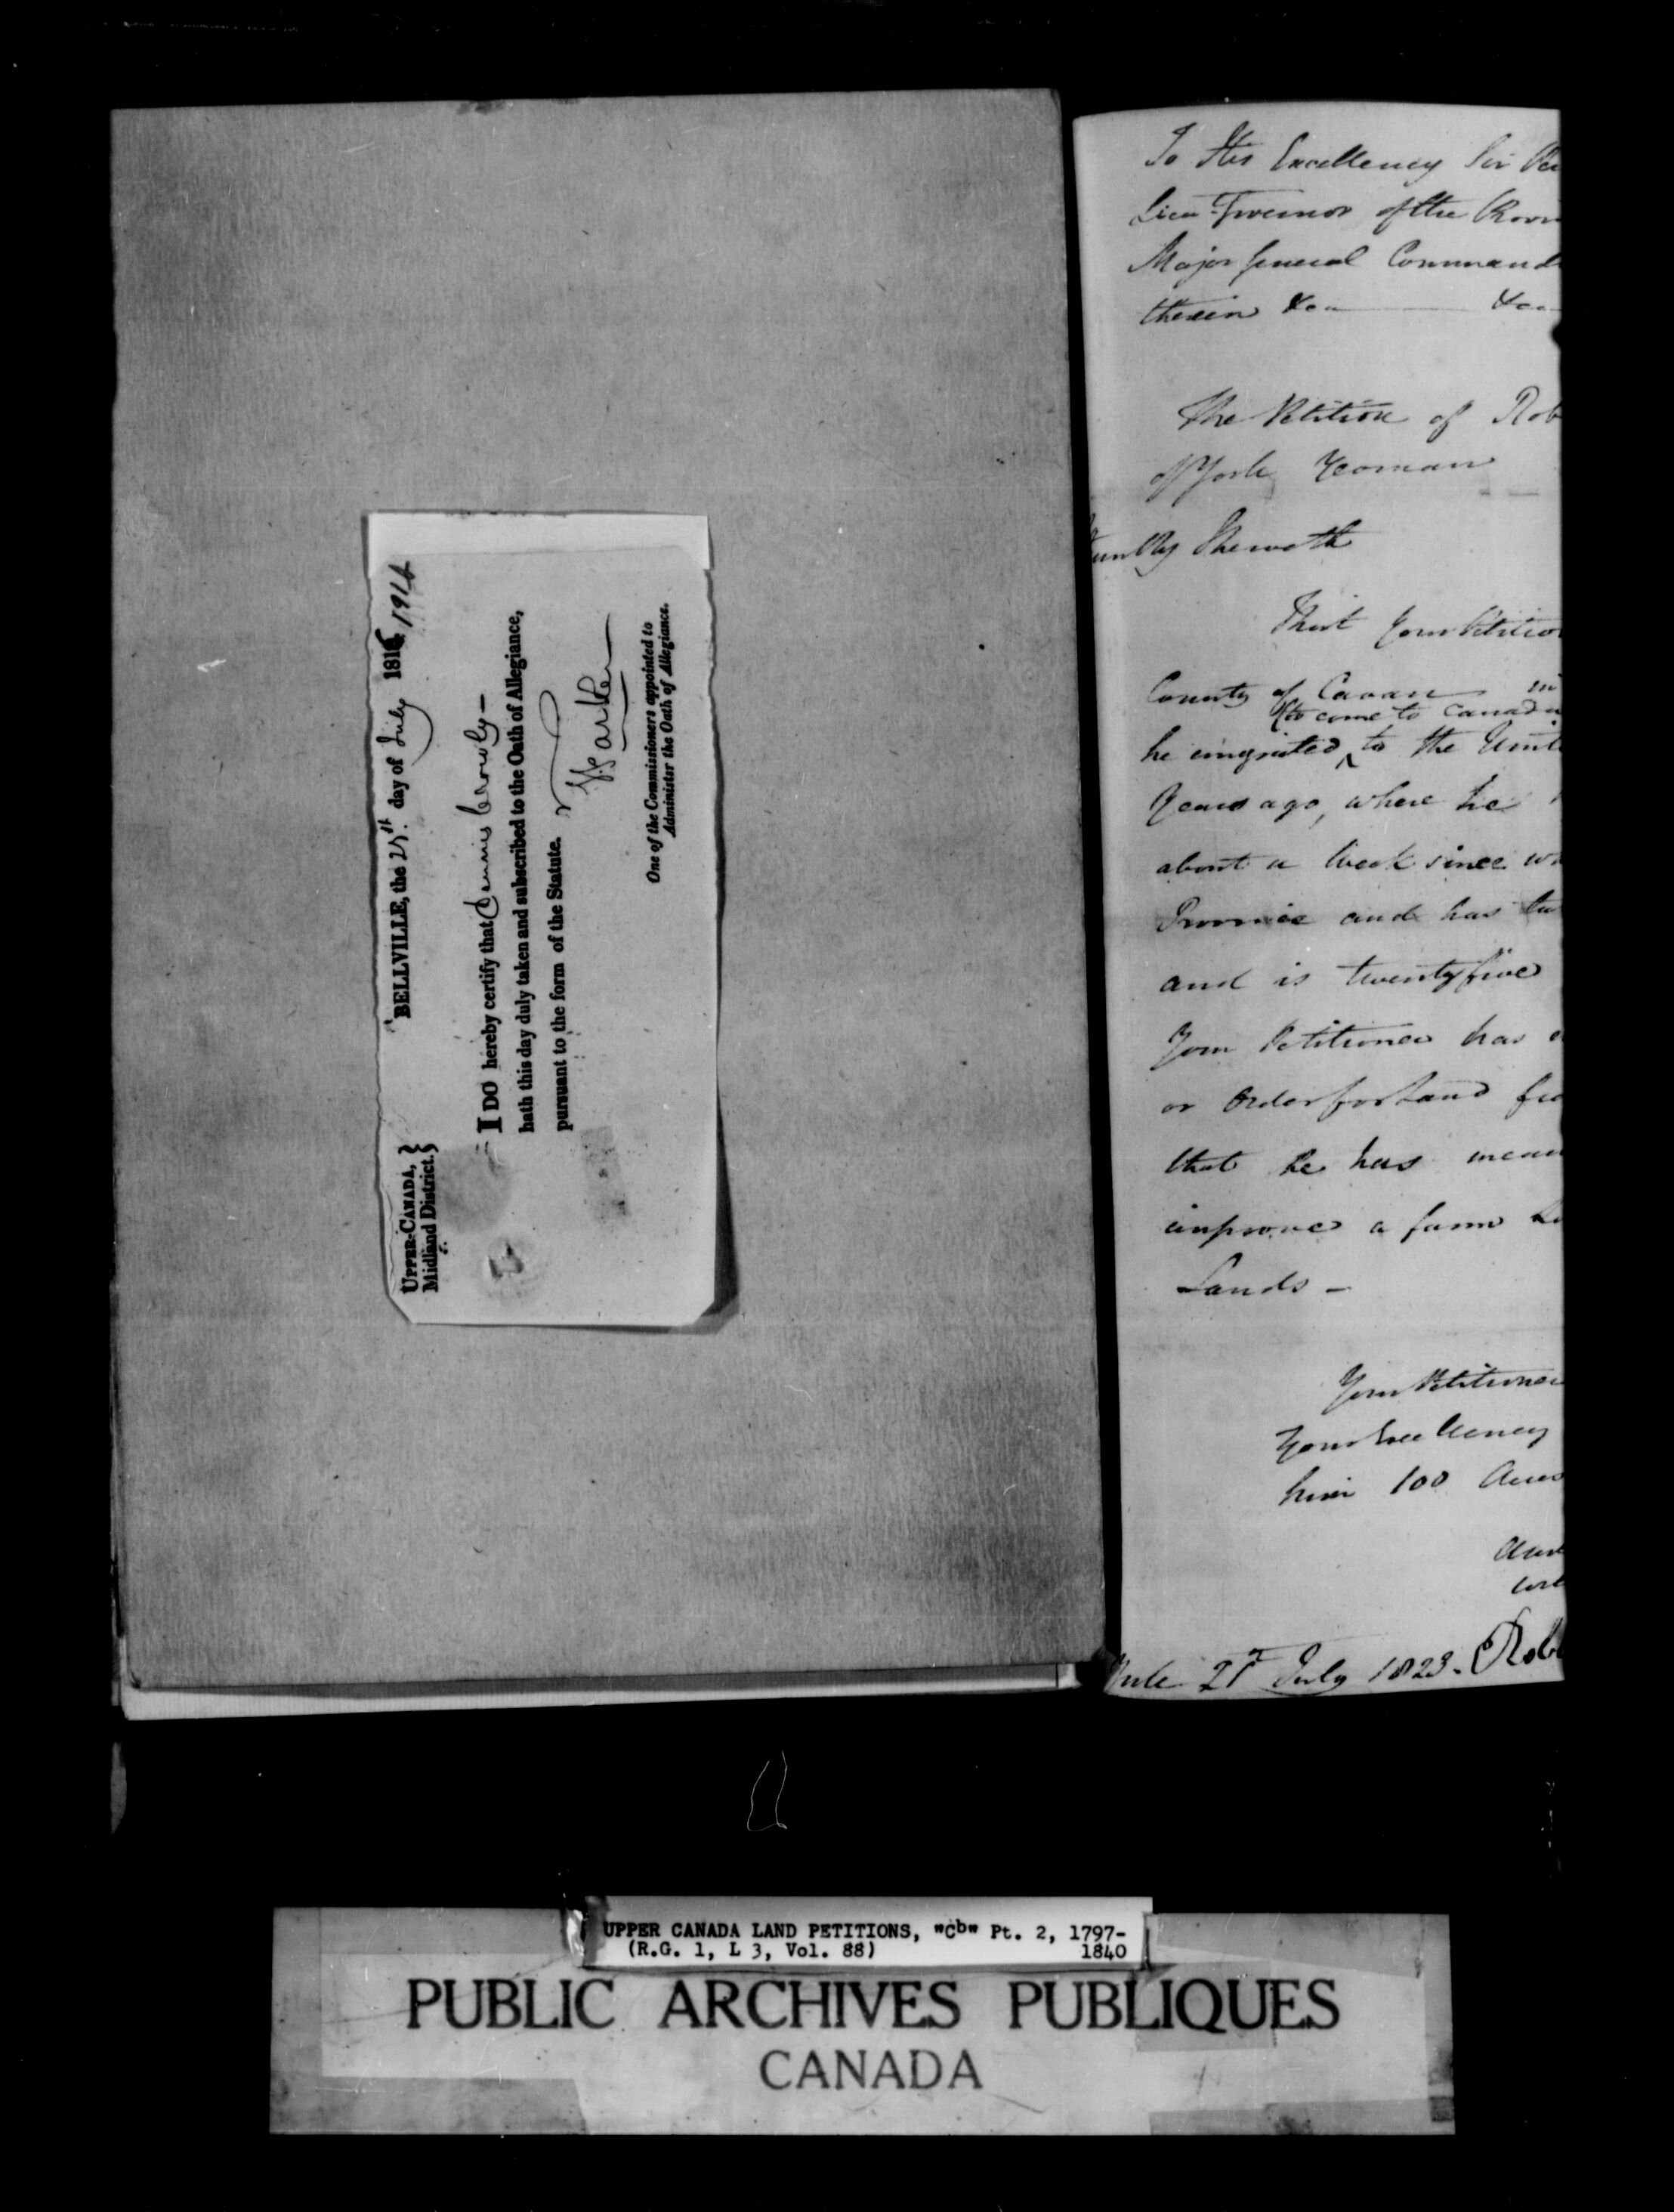 UPPER-CANADA,
Midland District.
BELLVILLE, the 25th day of July 181
I DO hereby certify that Dennis
hath this day duly taken and subscribed to the Oath of Allegiance,
pursuant to the form of the Statute.
Parker
One of the Commissioners appointed to
Administer the Oath of Allegiance.
To His Excellency Sir
Lieu Governor of the Prov
Major General Command
therein &c &c
The Petition of Rob
of York Yeoman
umbly Sheweth
That Your Petition
County of Cavan in
to come to Canada
he emigrated to the Unit
Years ago, where he
about a Week since
Province and has
and is twenty five
Your Petitioner has
or Order for Land
that he has mean
improve a farm
Lands -
Your Petitioner
Your Excellency
him 100 Acres
York 21st July 1823. Rob
UPPER CANADA LAND PETITIONS, "Cb" Pt. 2, 1797-
(R.G. 1, L 3, Vol. 88) 1840
PUBLIC ARCHIVES PUBLIQUES
CANADA